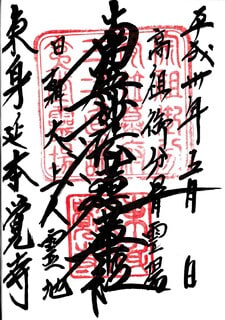 平成卅年五月 日
高祖御分骨霊場
南無妙法蓮華経
日朝大上人霊地
東身延本覚寺